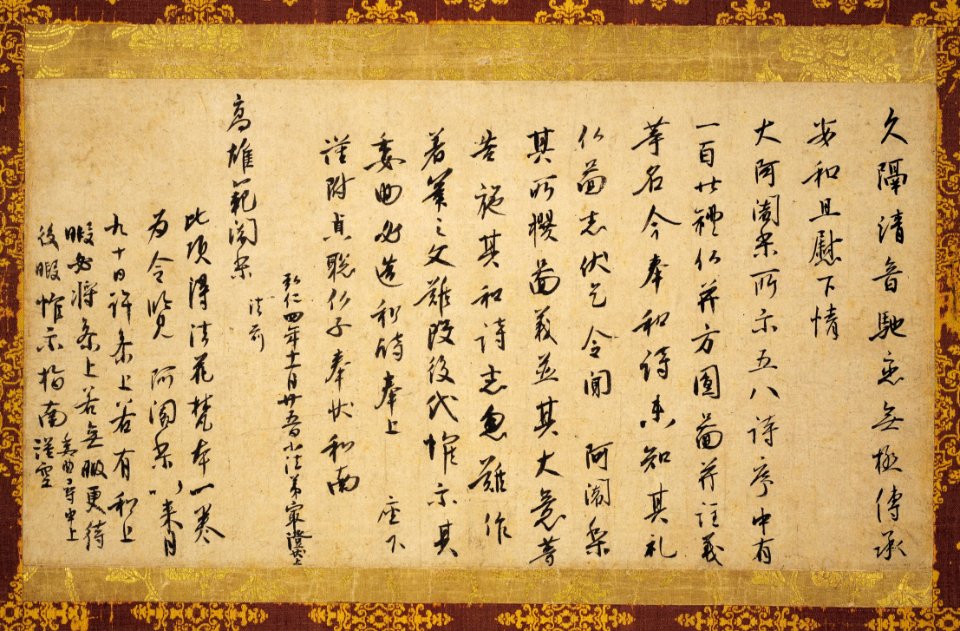 久隔清音馳恋無極傳承
安和且慰下情
大阿闍梨所示五八詩序中有
一百廿禮仏并方圓圖并注義
等名今奉和詩未知其礼
仏圖者伏乞令聞 阿闍梨
其所撰圖義並其大意等
告施其和詩者忽難作
著筆之文難改後代惟示其
委曲必造和詩奉上 座下
謹附貞聡仏子奉状和南
弘仁四年十一月廿五日小法弟最澄状上
高雄範闍梨
法前
此頃得法花梵本一巻
為令覧 阿闍梨以来月
九十日許参上若有和上
暇必将参上若無暇更待
後暇惟示指南 謹空